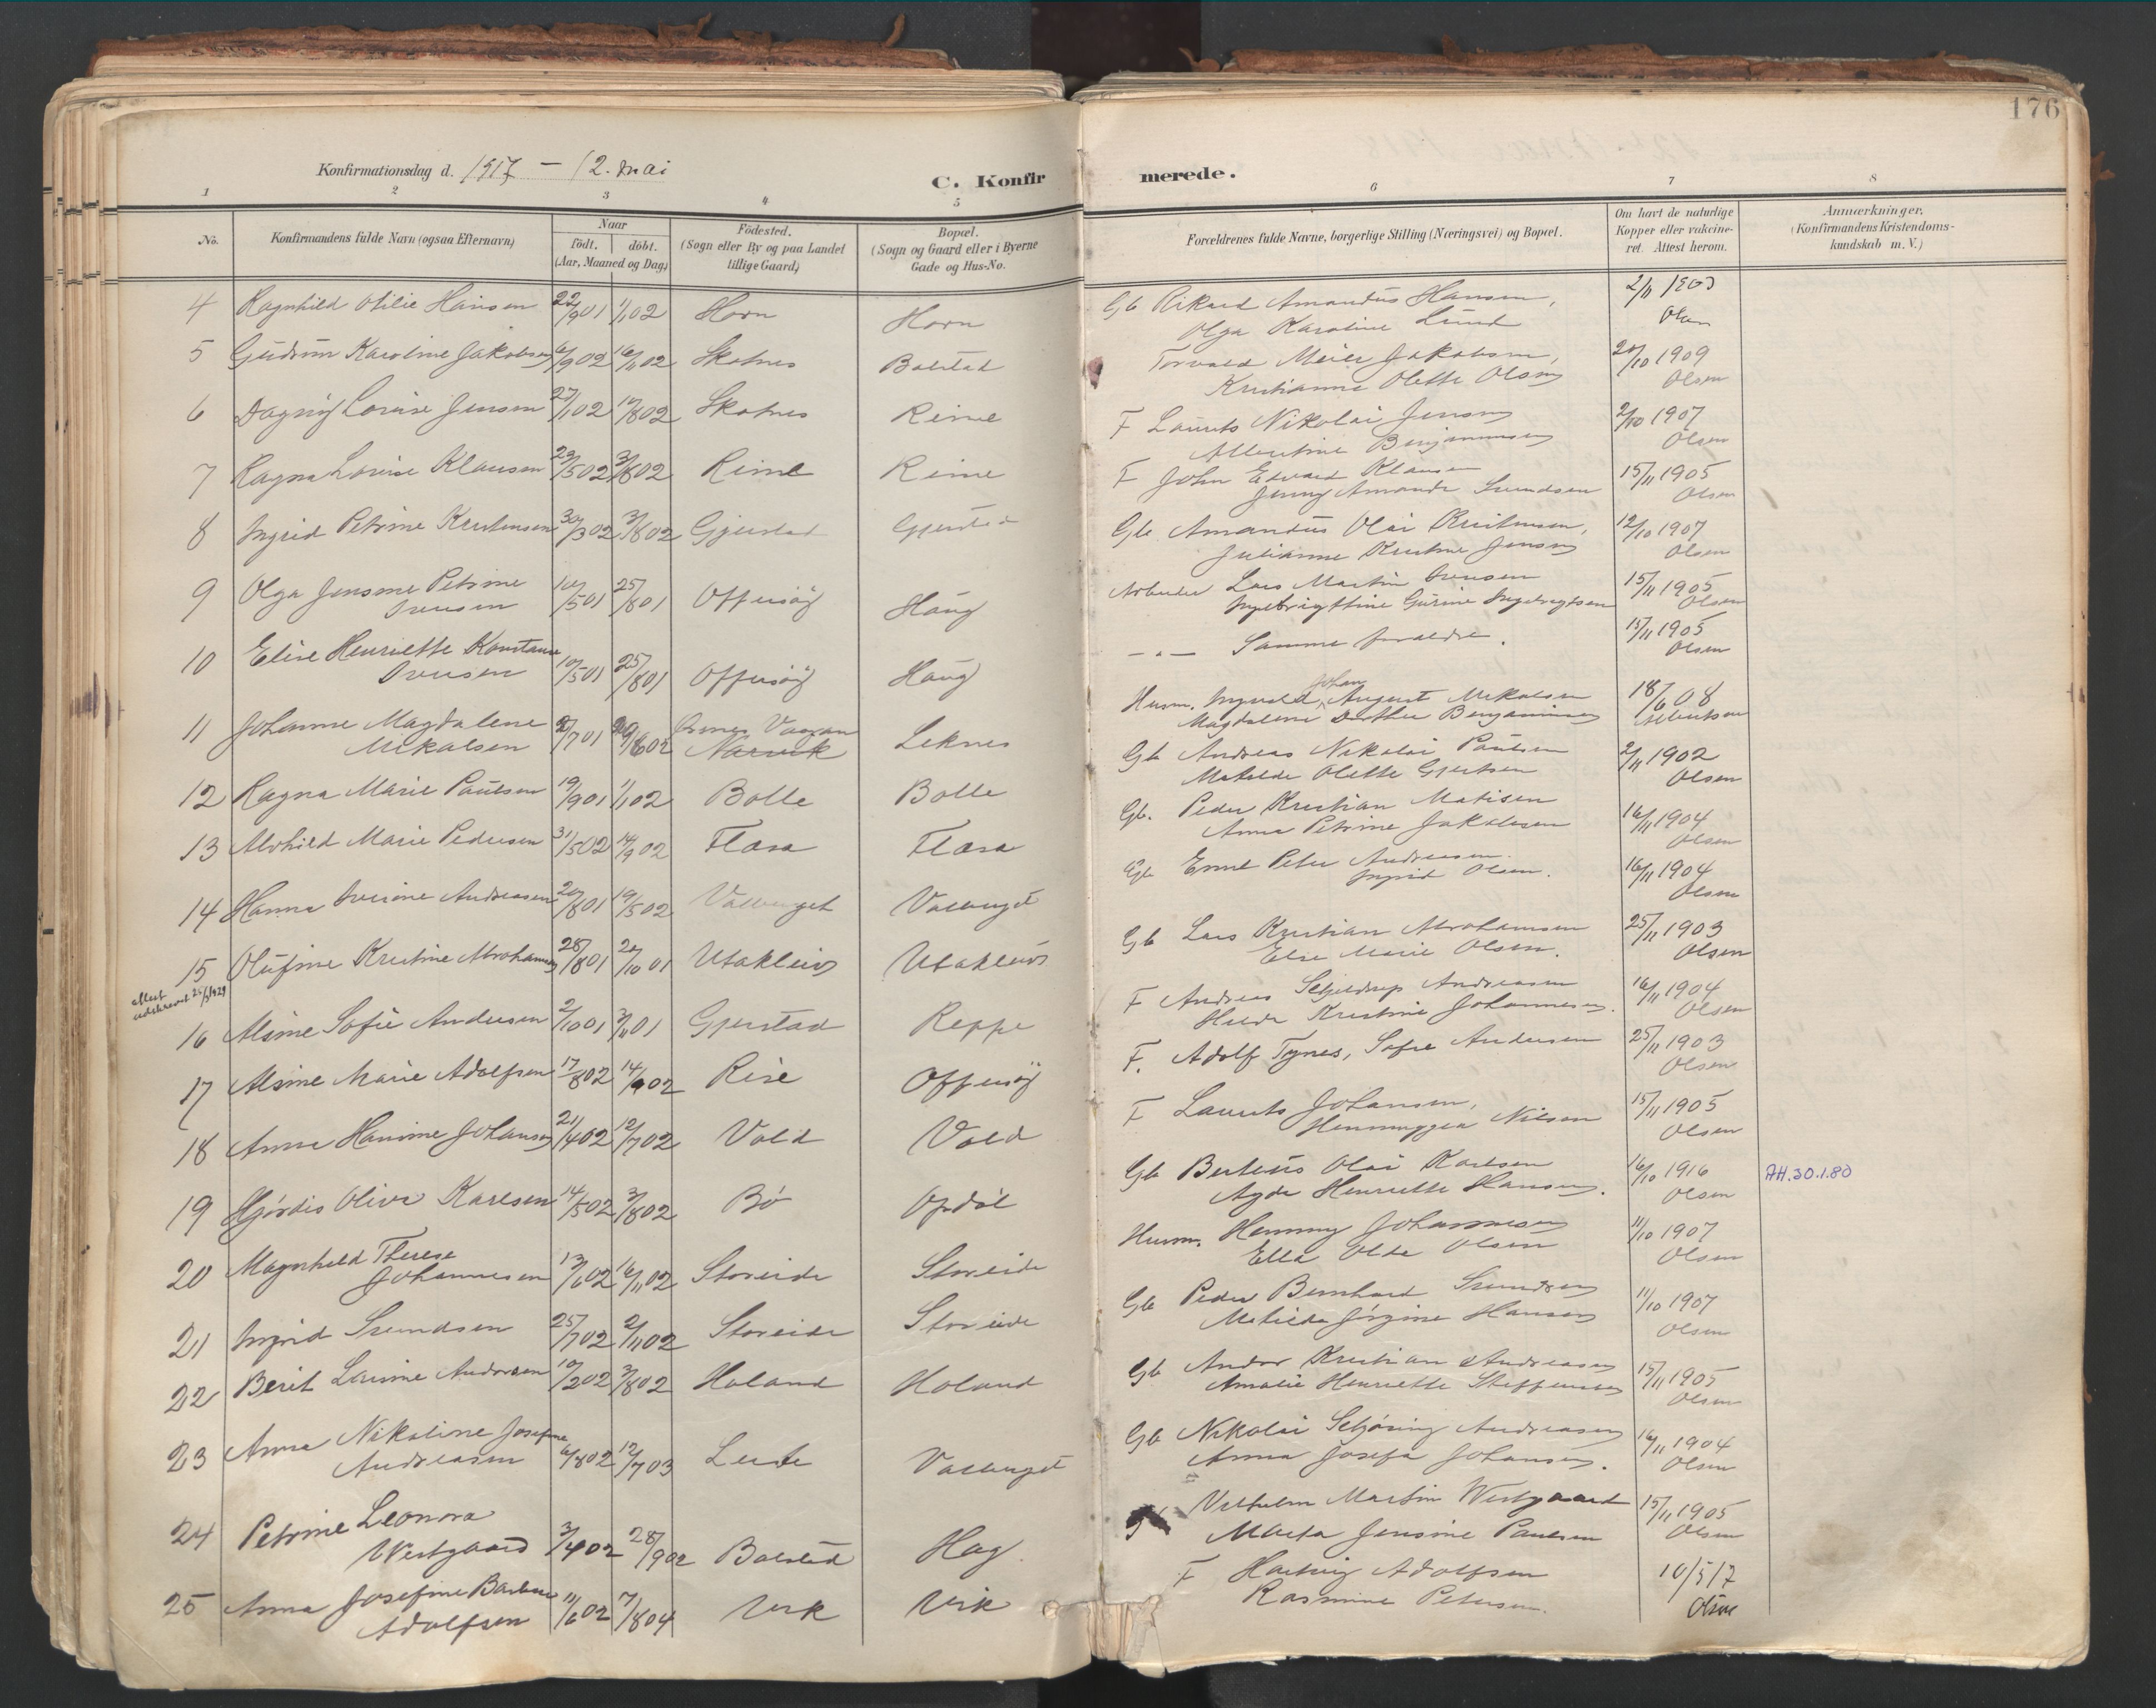 176
Konfirmationsdag d. 1917 — 12. mai
C. Konfirmerede.
1 2 3 4 5 6 7 8
No.
Konfirmandens fulde Navn (ogsaa Efternavn)
Naar
födt. döbt.
(Aar, Maaned og Dag)
Födested.
(Sogn eller By og paa Landet
tillige Gaard)
Bopæl.
(Sogn og Gaard eller i Byerne
Gade og Hus-No.
Forældrenes fulde Navne, borgerlige Stilling (Næringsvei) og Bopæl.
Om havt de naturlige
Kopper eller vakcine-
ret. Attest herom.
Anmærkninger.
(Konfirmandens Kristendoms-
kundskab m. V.)
4 Ragnhild Otilie Hansen 22/9 01 1/1 02 Horn Horn Gb Rikard Amandus Hansen, 2/11 1903
Olga Karoline Lund Olsen
5 Gudrun Karoline Jakobsen 6/9 02 16/11 02 Skotnes Bolstad Torvald Meier Jakobsen, 20/10 1909
Kristianne Olette Olsen Olsen
6 Dagny Lovise Jensen 27/1 02 17/8 02 Skotnes Rime F Laurits Nikolai Jensen 2/10 1907
Albertine Benjaminsen Olsen
7 Ragna Lovise Klausen 29/5 02 3/8 02 Rime Rime F John Edvard Klausen 15/11 1905
Jenny Amanda Svendsen Olsen
8 Ingrid Petrine Kristensen 30/3 02 3/8 02 Gjerstad Gjerstad Gb Amandus Olai Kristensen, 12/10 1907
Julianne Kristine Jensen Olsen
9 Olga Jensine Petrine 10/5 01 25/8 01 Offersöy Haug Arbeider Lars Martin Iversen 15/11 1905
Iversen Ingebrigtine Gurine Ingebrigtsen Olsen
10 Elise Henriette Konstanse 10/5 01 25/8 01 Offersöy Haug — " — Samme foreldre. 15/11 1905
Iversen Olsen
11 Johanne Magdalene /7 01 29/6 02 Vaagan Leknes Husm. Ingvald Johan August Mikalsen 18/6 08
Mikalsen Narvik Magdalene Dorthea Benjaminsen
12 Ragna Marie Paulsen 19/9 01 1/1 02 Bolle Bolle Gb Andreas Nikolai Paulsen 2/11 1902
Matilde Olette Gjertsen Olsen
13 Alvhild Marie Pedersen 31/5 02 14/9 02 Flæsa Flæsa Gb. Peder Kristian Matisen 16/11 1904
Anna Petrine Jakobsen Olsen
14 Hanna Iverine Andreasen 20/8 01 19/5 02 Valberget Valberget Gb Emil Peter Andreasen 16/11 1904
Ingrid Olsen. Olsen
15 Olufine Kristine Abrahamsen 28/8 01 20/10 01 Utakleiv Utakleiv Gb Lars Kristian Abrahamsen 25/11 1903
Else Marie Olsen. Olsen
attest
udskrevet 25/3 1929
16 Alsine Sofie Andersen 2/10 01 3/11 01 Gjerstad Reppe F Andreas Schjeldrup Andreasen 16/11 1904
Hilda Kristine Johannesen. Olsen
17 Alsine Marie Adolfsen 17/8 02 14/9 02 Rise Offersöy F. Adolf Tynes, Sofie Andersen 25/11 1903
Olsen
18 Anna Hansine Johansen 21/4 02 12/7 02 Vold Vold F Laurits Johansen, 15/11 1905
Henninggea Nilsen Olsen
19 Hjørdis Oliva Karlsen 14/5 02 3/8 02 Bö Opdöl Gb Berteus Olai Karlsen 16/10 1916 AH.30.1.80
Agda Henriette Hansen. Olsen
20 Magnhild Therese 13/6 02 16/11 02 Storeide Storeide Husm. Henning Johannesen 11/10 1907
Johannesen Ella Olde Olsen Olsen
21 Ingrid Svendsen 25/7 02 2/11 02 Storeide Storeide Gb Peder Bernhard Svendsen 11/10 1907
Matilde Jörgine Hansen Olsen
22 Berit Laurine Andorsen 10/2 02 3/8 02 Holand Holand Gb Andor Kristian Andreasen 15/11 1905
Amalie Henriette Steffensen Olsen
23 Anna Nikoline Josefine 6/8 02 12/7 03 Leite Valberget Gb Nikolai Schjöning Andreasen 16/11 1904
Andreasen Anna Josefa Johansen. Olsen
24 Petrine Leonora 3/4 02 28/9 02 Bolstad Hag Vilhelm Martin Westgaard 15/11 1905
Westgaard Marta Jensine Paulsen Olsen
25 Anna Josefine Barbara 11/6 02 7/8 04 Vik Vik F Hartvig Adolfsen 10/5 17
Adolfsen Rasmine Petersen. Olsen